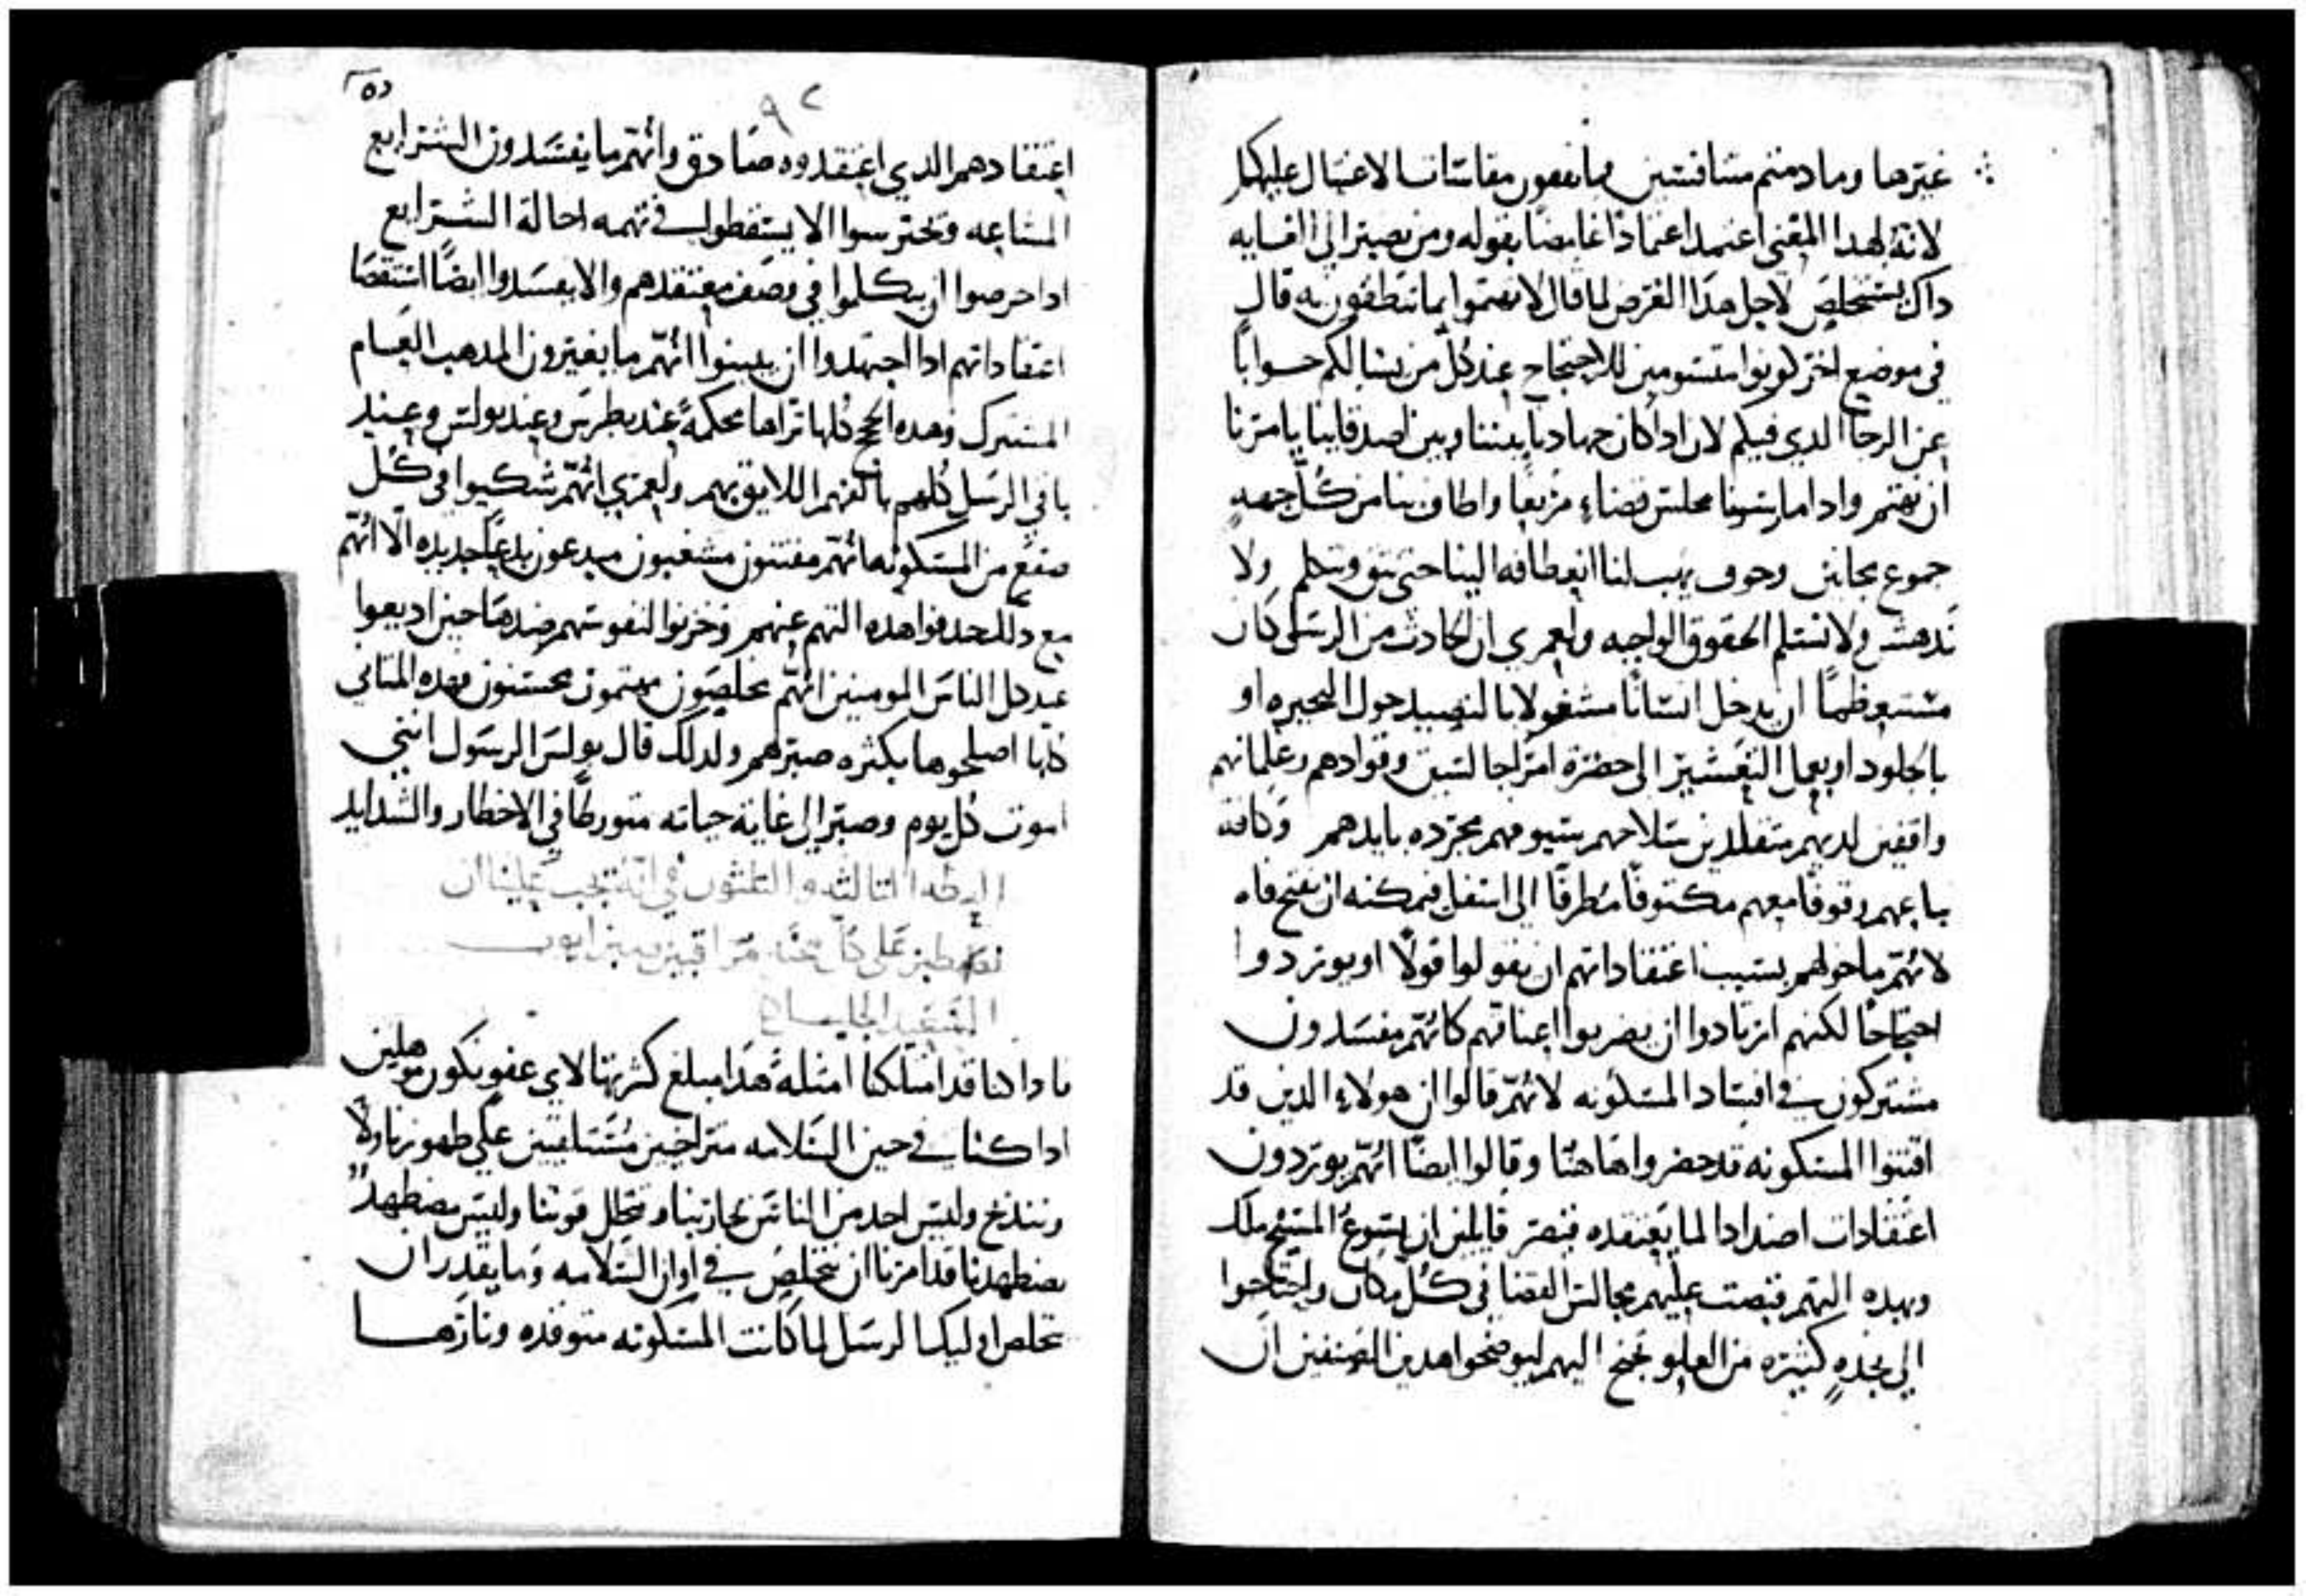 غيرها وما دمتم متنافسين فما تفعون مقاسات الاغتيال عليكم
لانه لهدا المعنى اعتمد اعتمادًا غامضًا بقوله ومن يصير الى اقصايه
داك يستخلص لاجل هدا الغرض لما قال لا تهتموا بما تنطقون به قال
في موضع اخر كونوا متسومين للاحتجاج عند كل من يسالكم جوابًا
عن الرجا الدي فيكم لان ادا كان جهادنا بيننا وبين اصدقاينا يامرنا
ان نهتم وادا ما راينا مجلس قضاء مريعًا واطاف بنا من كل جهه
جموع مجانين وخوف يهب لنا انعطافه الينا حتى نثق ونتكلم ولا
ندهش ولا نسلم الحقوق الواجبه ولعمري ان الحادث من الرسل كان
مستعظمًا ان يدخل انسانًا مشغولا بالتصييد حول البحيره او
بالجلود او بعمل التعشير الى حضرة امراجالسين وقوادهم وغلمانهم
واقفين لديهم متقلدين سلاحهم سيوفهم مجرده بايدهم وكافة
تباعهم وقوفًا معهم مكتوفًا مطرقًا الى اسفل فيمكنه ان يفتح فاه
لانهم ما خولهم بسبب اعتقاداتهم ان يقولوا قولًا او يوردوا
احتجاجًا لكنهم ارتادوا ان يضربوا اعناقهم كانهم مفسدون
مشتركون في افساد المسكونه لانهم قالوا ان هولاء الدين قد
افتنوا المسكونه قد حضروا هاهنا وقالوا ايضًا انهم يوردون
اعتقادات اضدادا لما يعتقده قيصر قايلين ان يسوع المسيح ملك
وبهده التهم قبضت عليهم مجالس القضا في كل مكان واحتاجوا
الى نجده كثيره من العلو تجنح اليهم ليوضحوا هدين الصنفين ان
٩٢
اعتقادهم الدي اعتقدوه صادق وانهم ما يفسدون الشرايع
المشاعه ويحترسوا الا يسقطوا في تهمه احالة الشرايع
ادا حرصوا ان يتكلموا في وصف معتقدهم والا يفسدوا ايضًا استقصا
اعتقاداتهم ادا اجتهدوا ان يبينوا انهم ما يغيرون المدهب العام
المشترك وهده الحجج كلها تراها محكمةً عند بطرس وعند بولس وعند
باقي الرسل كلهم بالفهم اللايق بهم ولعمري انهم شكيوا في كل
صقع من المسكونه انهم مفتنون مشغبون مبدعون بدعًا جديده الا انهم
مع دلك حدفوا هده التهم عنهم وخزنوا لنفوسهم ضدها حين اديعوا
عند كل الناس المومنين انهم مخلصون مهتمون محسنون وهده المناني
كلها اصلحوها بكثره صبرهم ولدلك قال بولس الرسول انني
اموت كل يوم وصبر الى غاية حياته متورطًا في الاخطار والشدايد
العظه الثالثه والثلثون في انه يجب علينا ان
على كل مراقبين صبر ايوب
السعيد الجليل
فادا كنا قد امتلكنا امثلةً هدا مبلغ كثرتها لاي عفو نكون موهلين
ادا كنا في حين السلامه متراخيين متسايبين على ظهورنا ولا
وننذخ وليس احد من الناس يحاربنا ويحلل قوتنا وليس مضطهدٌ
يضطهدنا قد امرنا ان نتخلص في اوان السلامه وما يقدر ان
نخلص اوليك الرسل لما كانت المسكونه متوقده ونارها